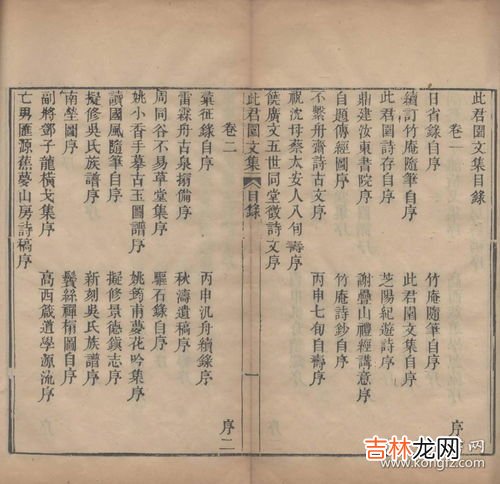 此君園文集目錄
卷一 序
日省錄自序 竹庵隨筆自序
續訂竹庵隨筆自序 此君園文集自序
此君園詩存自序 芝陽紀遊詩序
鼎建汝東書院序 謝疊山禮經講意序
自題傳經圖序 竹庵詩鈔自序
不繫舟齋詩古文序 丙申七旬自壽序
祝沈母蔡太安人八旬壽序
饒廣文五世同堂徵詩文序
此君園文集 目錄
卷二 序二
彙征錄自序 丙申汎舟續錄序
雷霖舟古泉搨備序 秋濤遺稿序
周同谷不易草堂集序 驅石錄自序
姚小香手摹古玉圖譜序 姚筠甫夢花吟集序
讀國風隨筆自序 擬修景德鎮志序
擬修吳氏族譜序 新刻吳氏族譜序
南塋圖序 鬢絲禪榻圖自序
副將鄧子龍橫戈集序 高西箴道學源流序
亡男匯源蕉夢山房詩稿序
吉林龙网